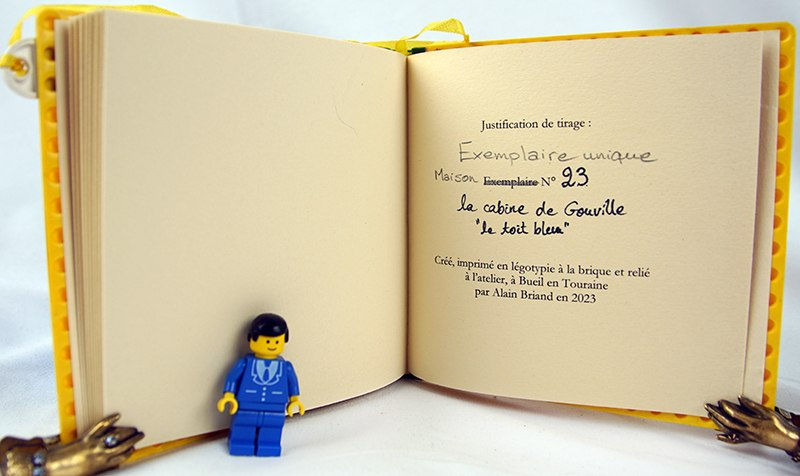 Justification de tirage :
Exemplaire unique
Maison Exemplaire N° 23
la cabine de Gouville
"le toit bleu"
Créé, imprimé en légotypie à la brique et relié
à l'atelier, à Bueil en Touraine
par Alain Briand en 2023